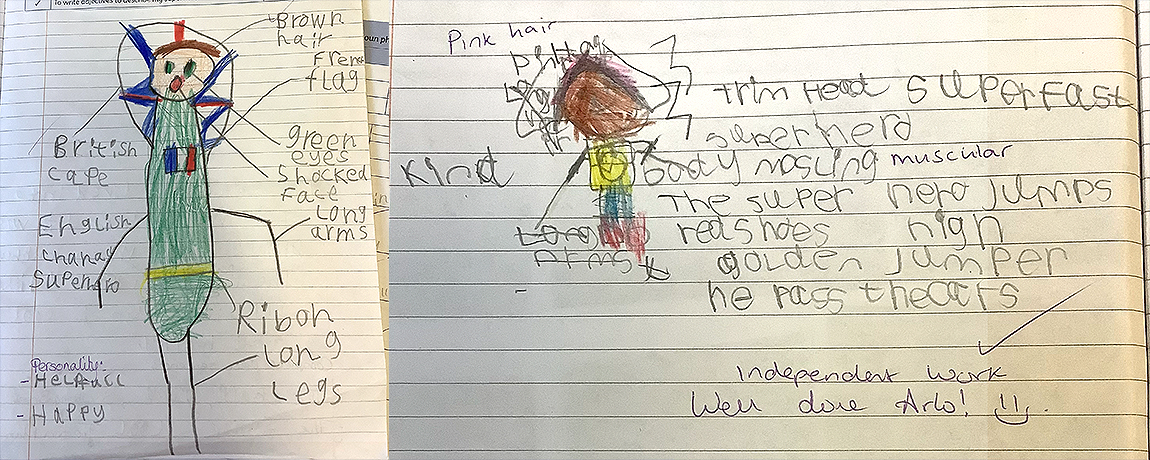 ✓ To write adjectives to describe
Brown
hair
French
flag
British
cape
green
eyes
Shocked
Face
Long
arms
English
Superhero
Ribon
Long
Legs
Personality:
- Helpfull
- Happy
oun ph
Pink hair
Trim Head superfast
superherd
Kind
body mosling muscular
The super hero jumps
red shoes high
Long
Arms
golden jumper
he pass the cars
Independent work
Well done Arlo!